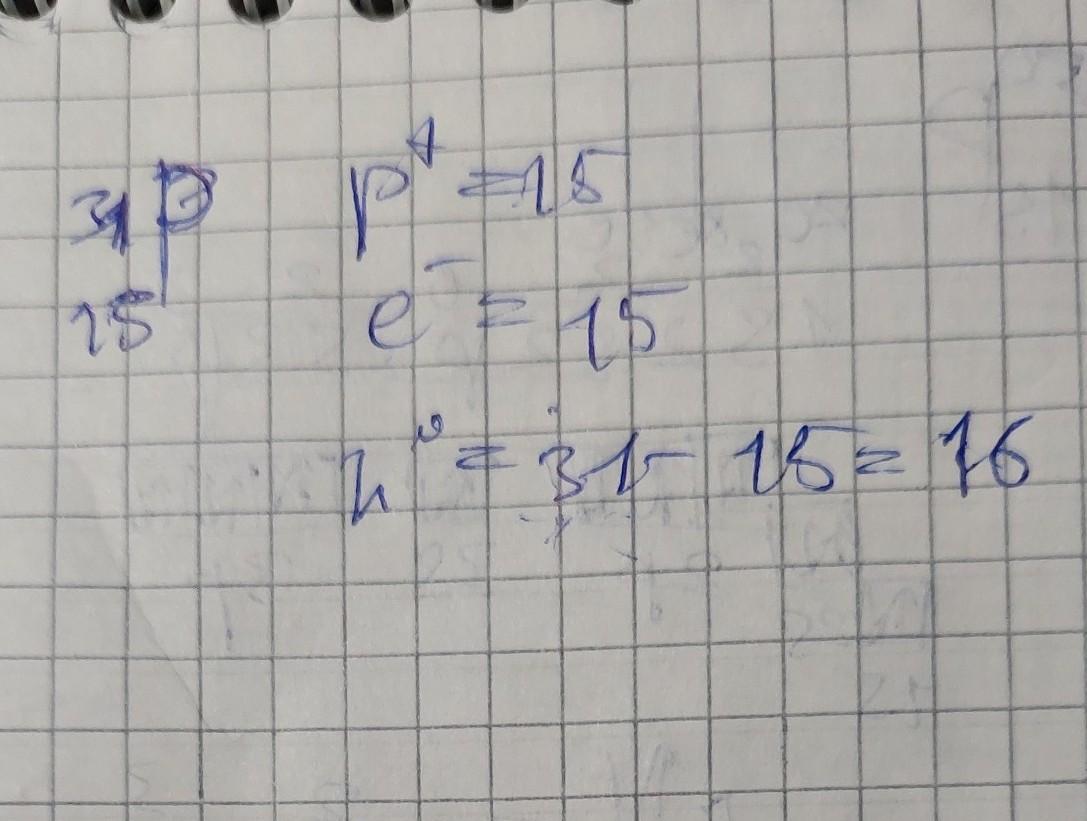 31 P p⁺ = 15
15 e⁻ = 15
n⁰ = 31 - 15 = 16